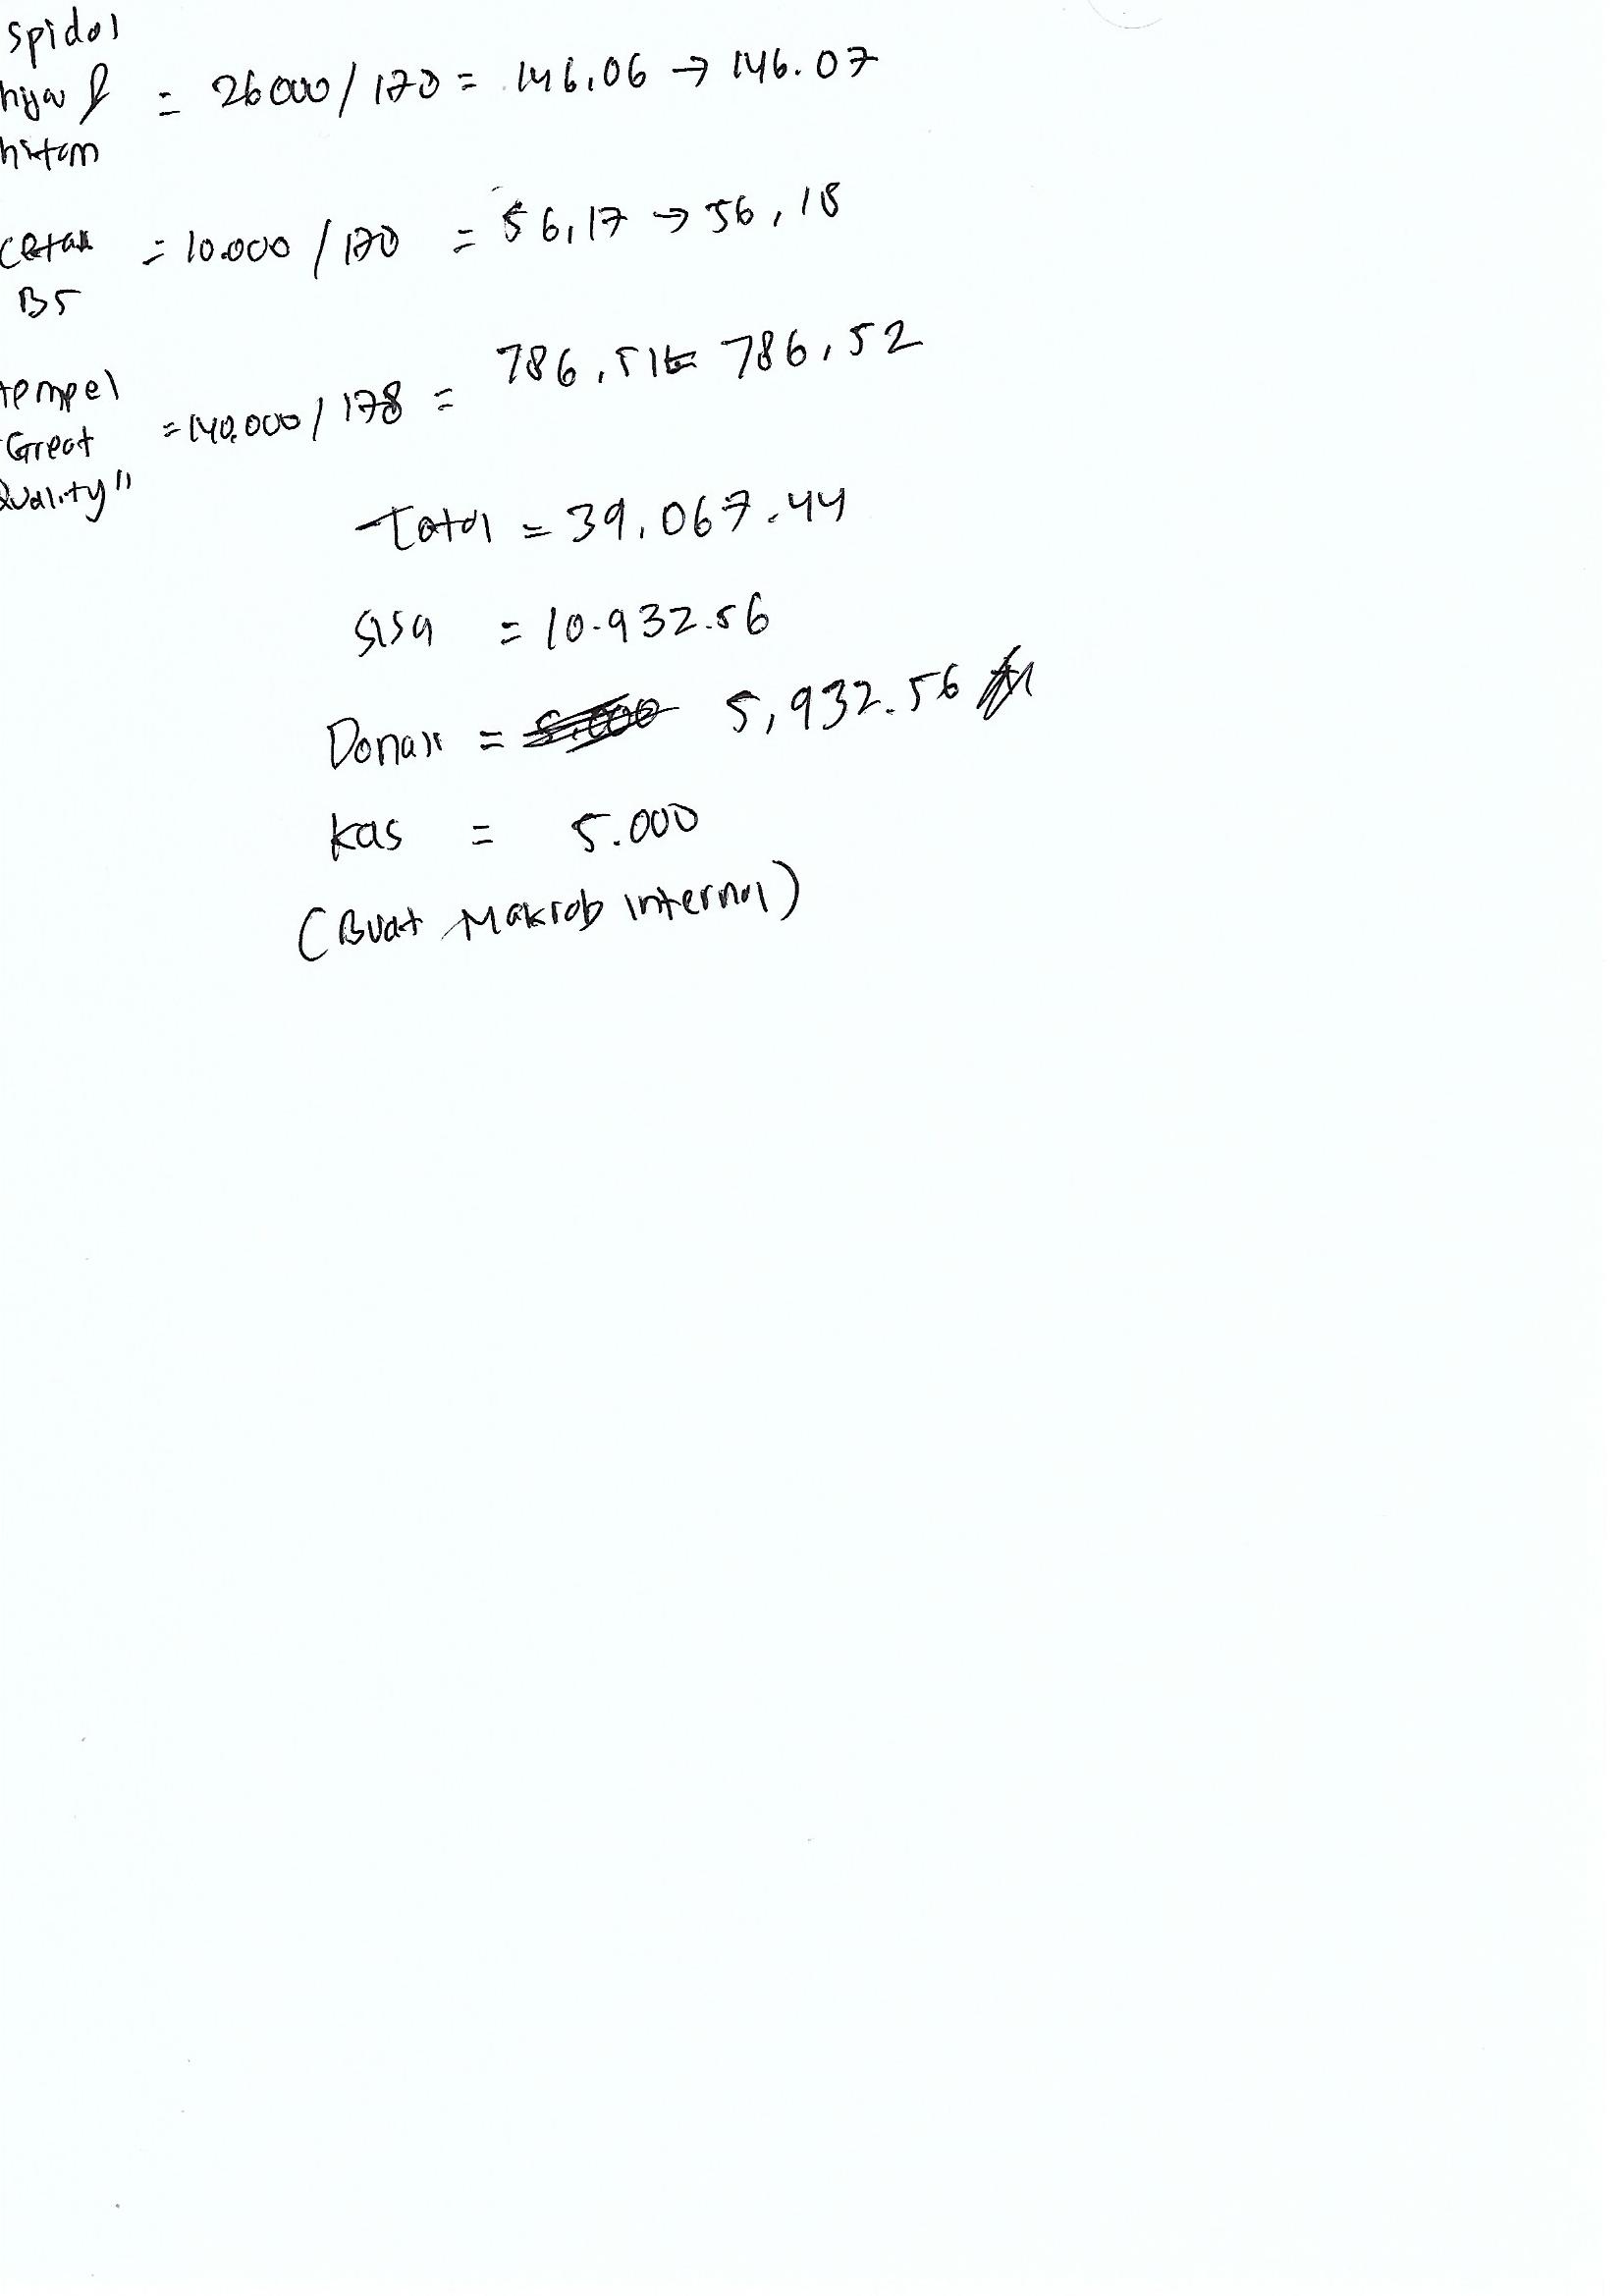 spidol
hijau &
hitam
= 26000/178 = 146,06 → 146.07
cetak
B5
= 10.000/178 = 56,17 → 56,18
tempel
Great
Quality"
= 140.000/178 = 786,51 = 786,52
Total = 39,067.44
Sisa = 10.932.56
Donasi = 5.000 5,932.56
kas = 5.000
(Buat Makrab internal)